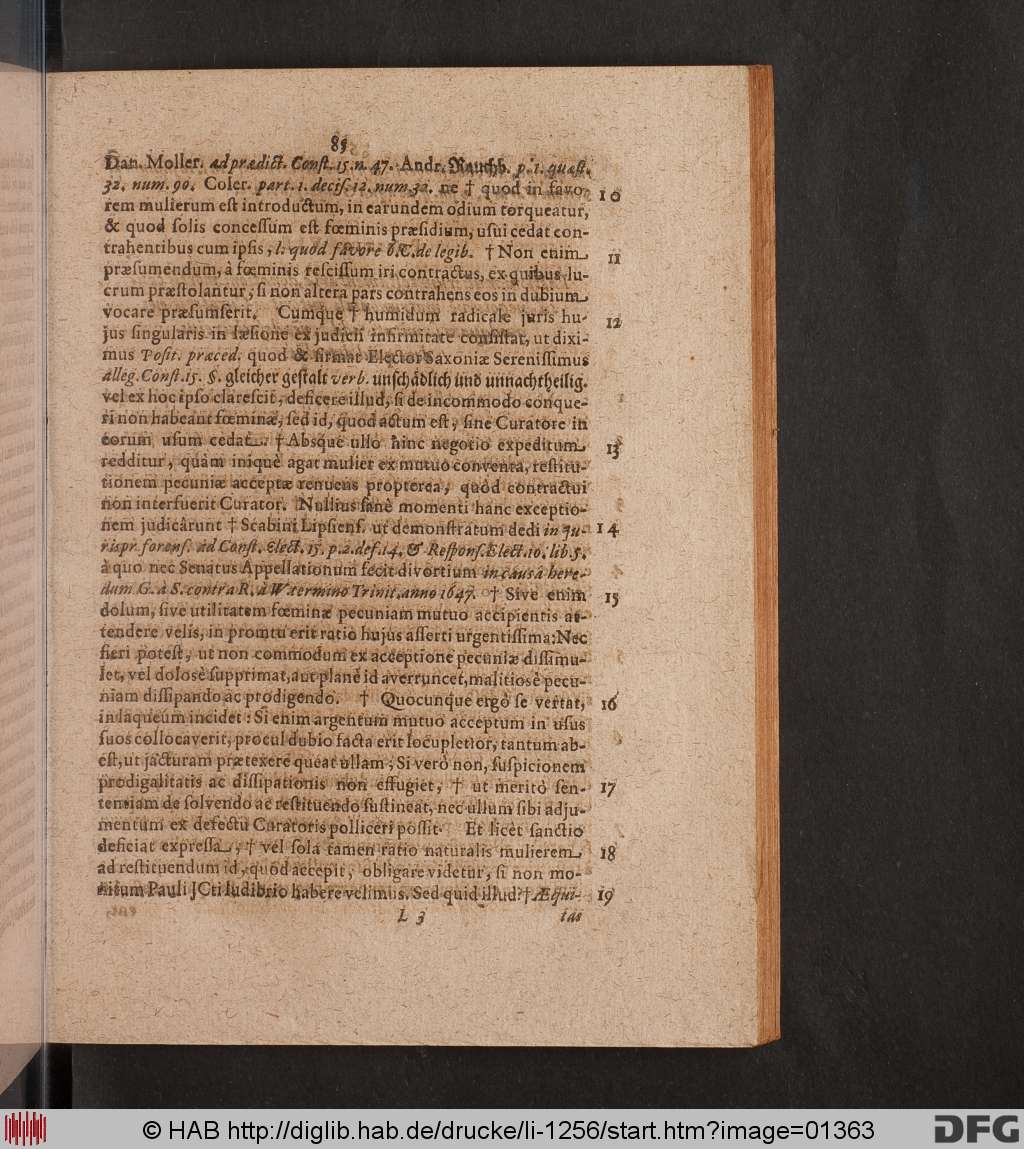 85
Dan. Moller. ad prædict. Const. 15. n. 47. Andr. Rauchb. p. 1. quæst.
32. num. 90. Coler. part. 1. decis. 12. num. 32. ne † quod in favo- 10
rem mulierum est introductum, in earundem odium torqueatur,
& quod solis concessum est fœminis præsidium, usui cedat con-
trahentibus cum ipsis, l. quod favore 6. C. de legib. † Non enim 11
præsumendum, à fœminis rescissum iri contractus, ex quibus lu-
crum præstolantur, si non altera pars contrahens eos in dubium
vocare præsumserit. Cumque † humidum radicale juris hu- 12
jus singularis in læsione ex judicii infirmitate consistat, ut dixi-
mus Posit. præced. quod & firmat Elector Saxoniæ Serenissimus
alleg. Const. 15. §. gleicher gestalt verb. unschädlich und unnachtheilig.
vel ex hoc ipso clarescit, deficere illud, si de incommodo conque-
ri non habeant fœminæ, sed id, quod actum est, sine Curatore in
eorum usum cedat. † Absque ullo hinc negotio expeditum 13
redditur, quàm iniquè agat mulier ex mutuo conventa, restitu-
tionem pecuniæ acceptæ renuens propterea, quòd contractui
non interfuerit Curator. Nullius sanè momenti hanc exceptio-
nem judicârunt † Scabini Lipsiens. ut demonstratum dedi in Ju- 14
rispr. forens. ad Const. Elect. 15. p. 2. def. 14. & Respons. Elect. 10. lib. 5.
à quo nec Senatus Appellationum fecit divortium in causâ here-
dum G. à S. contra R. à W. termino Trinit. anno 1647. † Sive enim 15
dolum, sive utilitatem fœminæ pecuniam mutuo accipientis at-
tendere velis, in promtu erit ratio hujus asserti urgentissima: Nec
fieri potest, ut non commodum ex acceptione pecuniæ dissimu-
let, vel dolosè supprimat, aut planè id averruncet, malitiosè pecu-
niam dissipando ac prodigendo. † Quocunque ergò se vertat, 16
in laqueum incidet: Si enim argentum mutuo acceptum in usus
suos collocaverit, procul dubio facta erit locupletior, tantum ab-
est, ut jacturam prætexere queat ullam; Si verò non, suspicionem
prodigalitatis ac dissipationis non effugiet, † ut meritò sen- 17
tentiam de solvendo ac restituendo sustineat, nec ullum sibi adju-
mentum ex defectu Curatoris polliceri possit. Et licèt sanctio
deficiat expressa, † vel sola tamen ratio naturalis mulierem 18
ad restituendum id, quod accepit, obligare videtur, si non mo-
nitum Pauli JCti ludibrio habere velimus. Sed quid illud? † Æqui- 19
L 3 tas
© HAB http://diglib.hab.de/drucke/li-1256/start.htm?image=01363
DFG